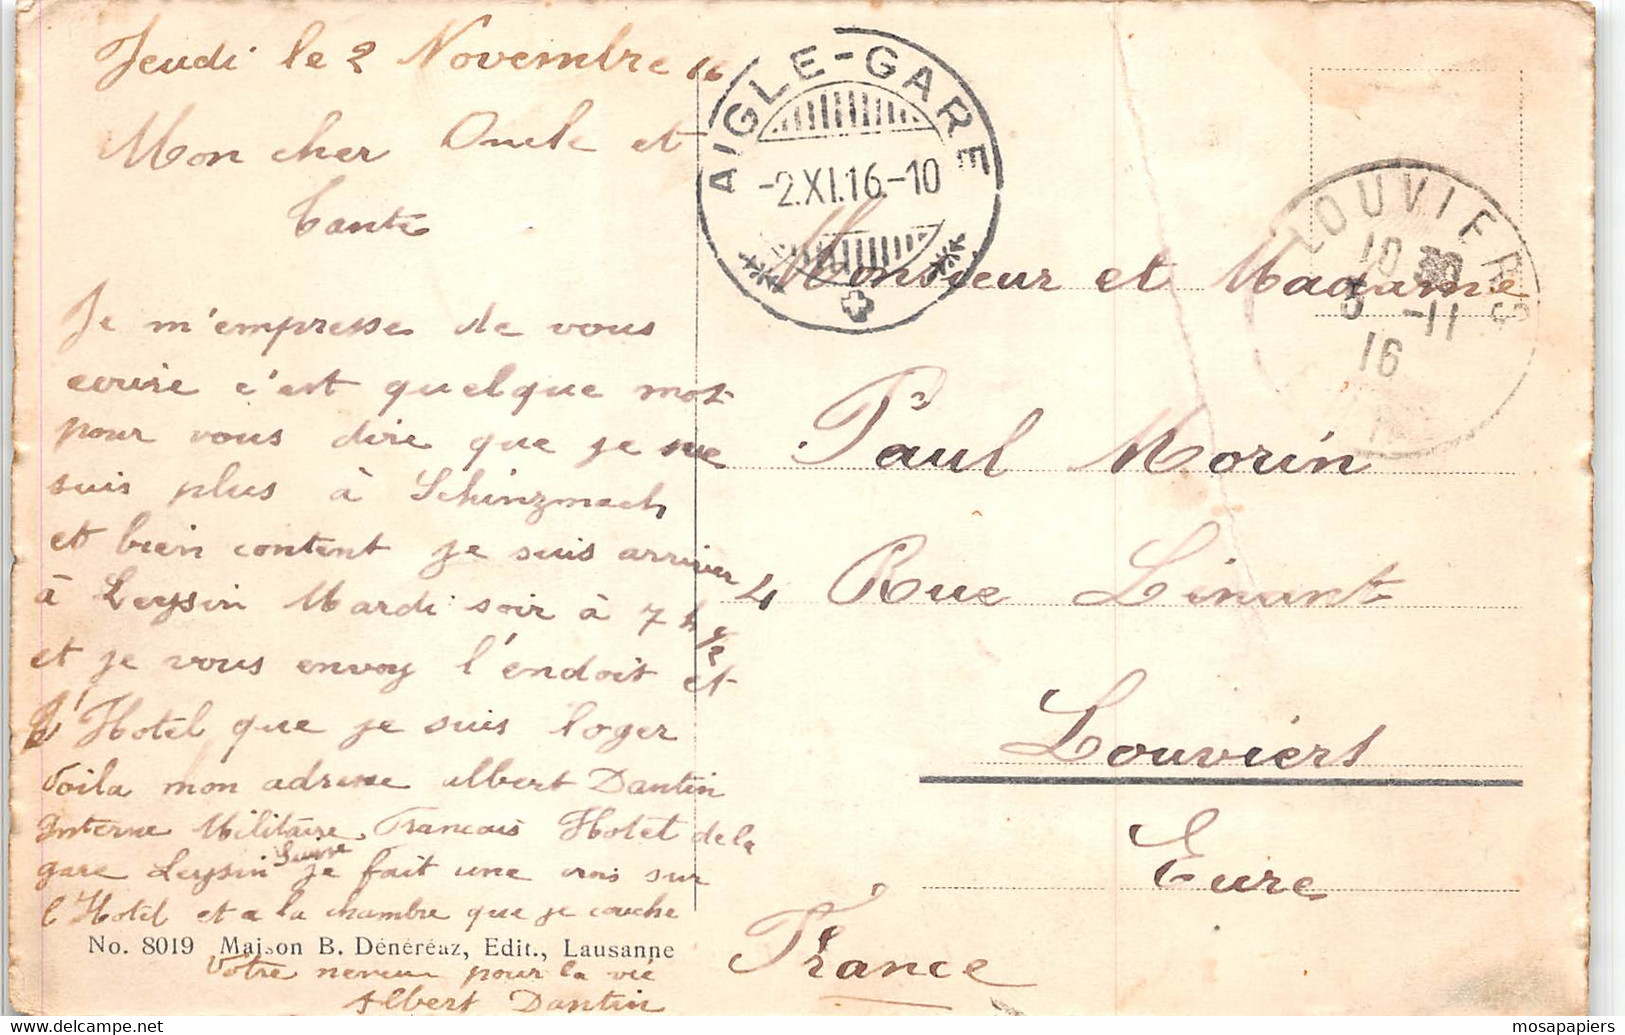 Jeudi le 2 Novembre 16
Mon cher Oncle et
Tante
Je m'empresse de vous
ecrire c'est quelque mot
pour vous dire que je ne
suis plus à Schinzmach
et bien content je suis arriver
à Leysin Mardi soir à 7 h 1/2
et je vous envoy l'endoit et
l'Hotel que je suis loger
Voila mon adresse albert Dantin
Interne Militaire Francais Hotel de la
gare Leysin Suisse je fait une crois sur
l'Hotel et a la chambre que je couche
No. 8019 Maison B. Dénéréaz, Edit., Lausanne
Votre neveu pour la vie
Albert Dantin
AIGLE-GARE
-2.XI.16.-10
LOUVIERS
10 30
5 -11
16
Monsieur et Madame
Paul Morin
4 Rue Linant
Louviers
Eure
France
www.delcampe.net
mosapapiers